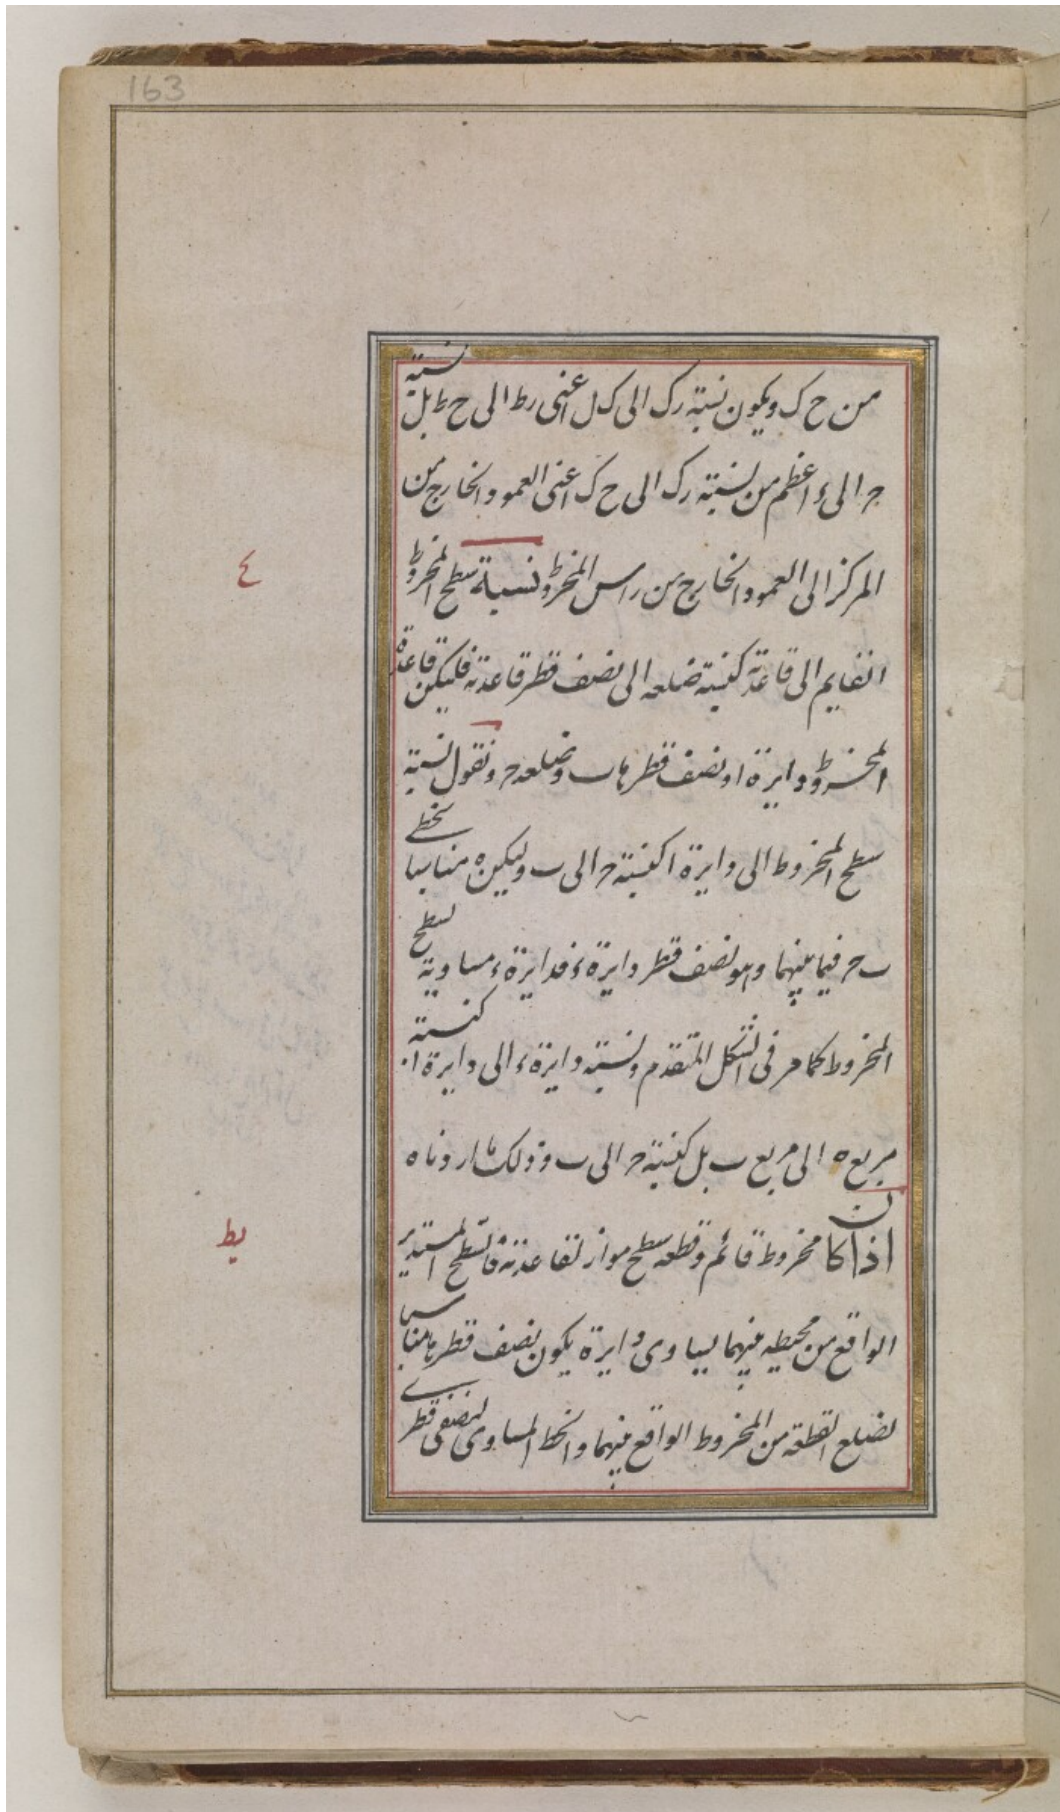 163
من ح ك ويكون نسبة رك الى ك ل اعنى رط الى ح ط بل نسبة
ج الى ء اعظم من نسبة رك الى ح ك اعنى العمود الخارج من
المركز الى العمود الخارج من راس المخروط نسبة سطح المخروط
ع
القايم الى قاعدته كنسبة ضلعه الى نصف قطر قاعدته فليكن قاعدة
المخروط دايرة ا ونصف قطرها ب وضلعه ح ونقول نسبة
سطح المخروط الى دايرة ا كنسبة ح الى ب وليكن ه مناسبا لخطى
ب ح فيما بينهما وهو نصف قطر دايرة ء فدايرة ء مساوية لسطح
المخروط كما مر فى الشكل المتقدم ونسبة دايرة ء الى دايرة ا كنسبة
مربع ه الى مربع ب بل كنسبة ح الى ب وذلك ما اردناه
يط
اذا كان مخروط قائم وقطعه سطح مواز لقاعدته فالسطح المستدير
الواقع من محيطه بينهما يساوى دايرة يكون نصف قطرها مناسبا
لضلع القطعة من المخروط الواقع بينهما والخط المساوى لنصفى قطرى